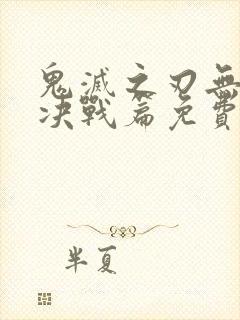 鬼滅之刃無
決戰篇免費
半夏